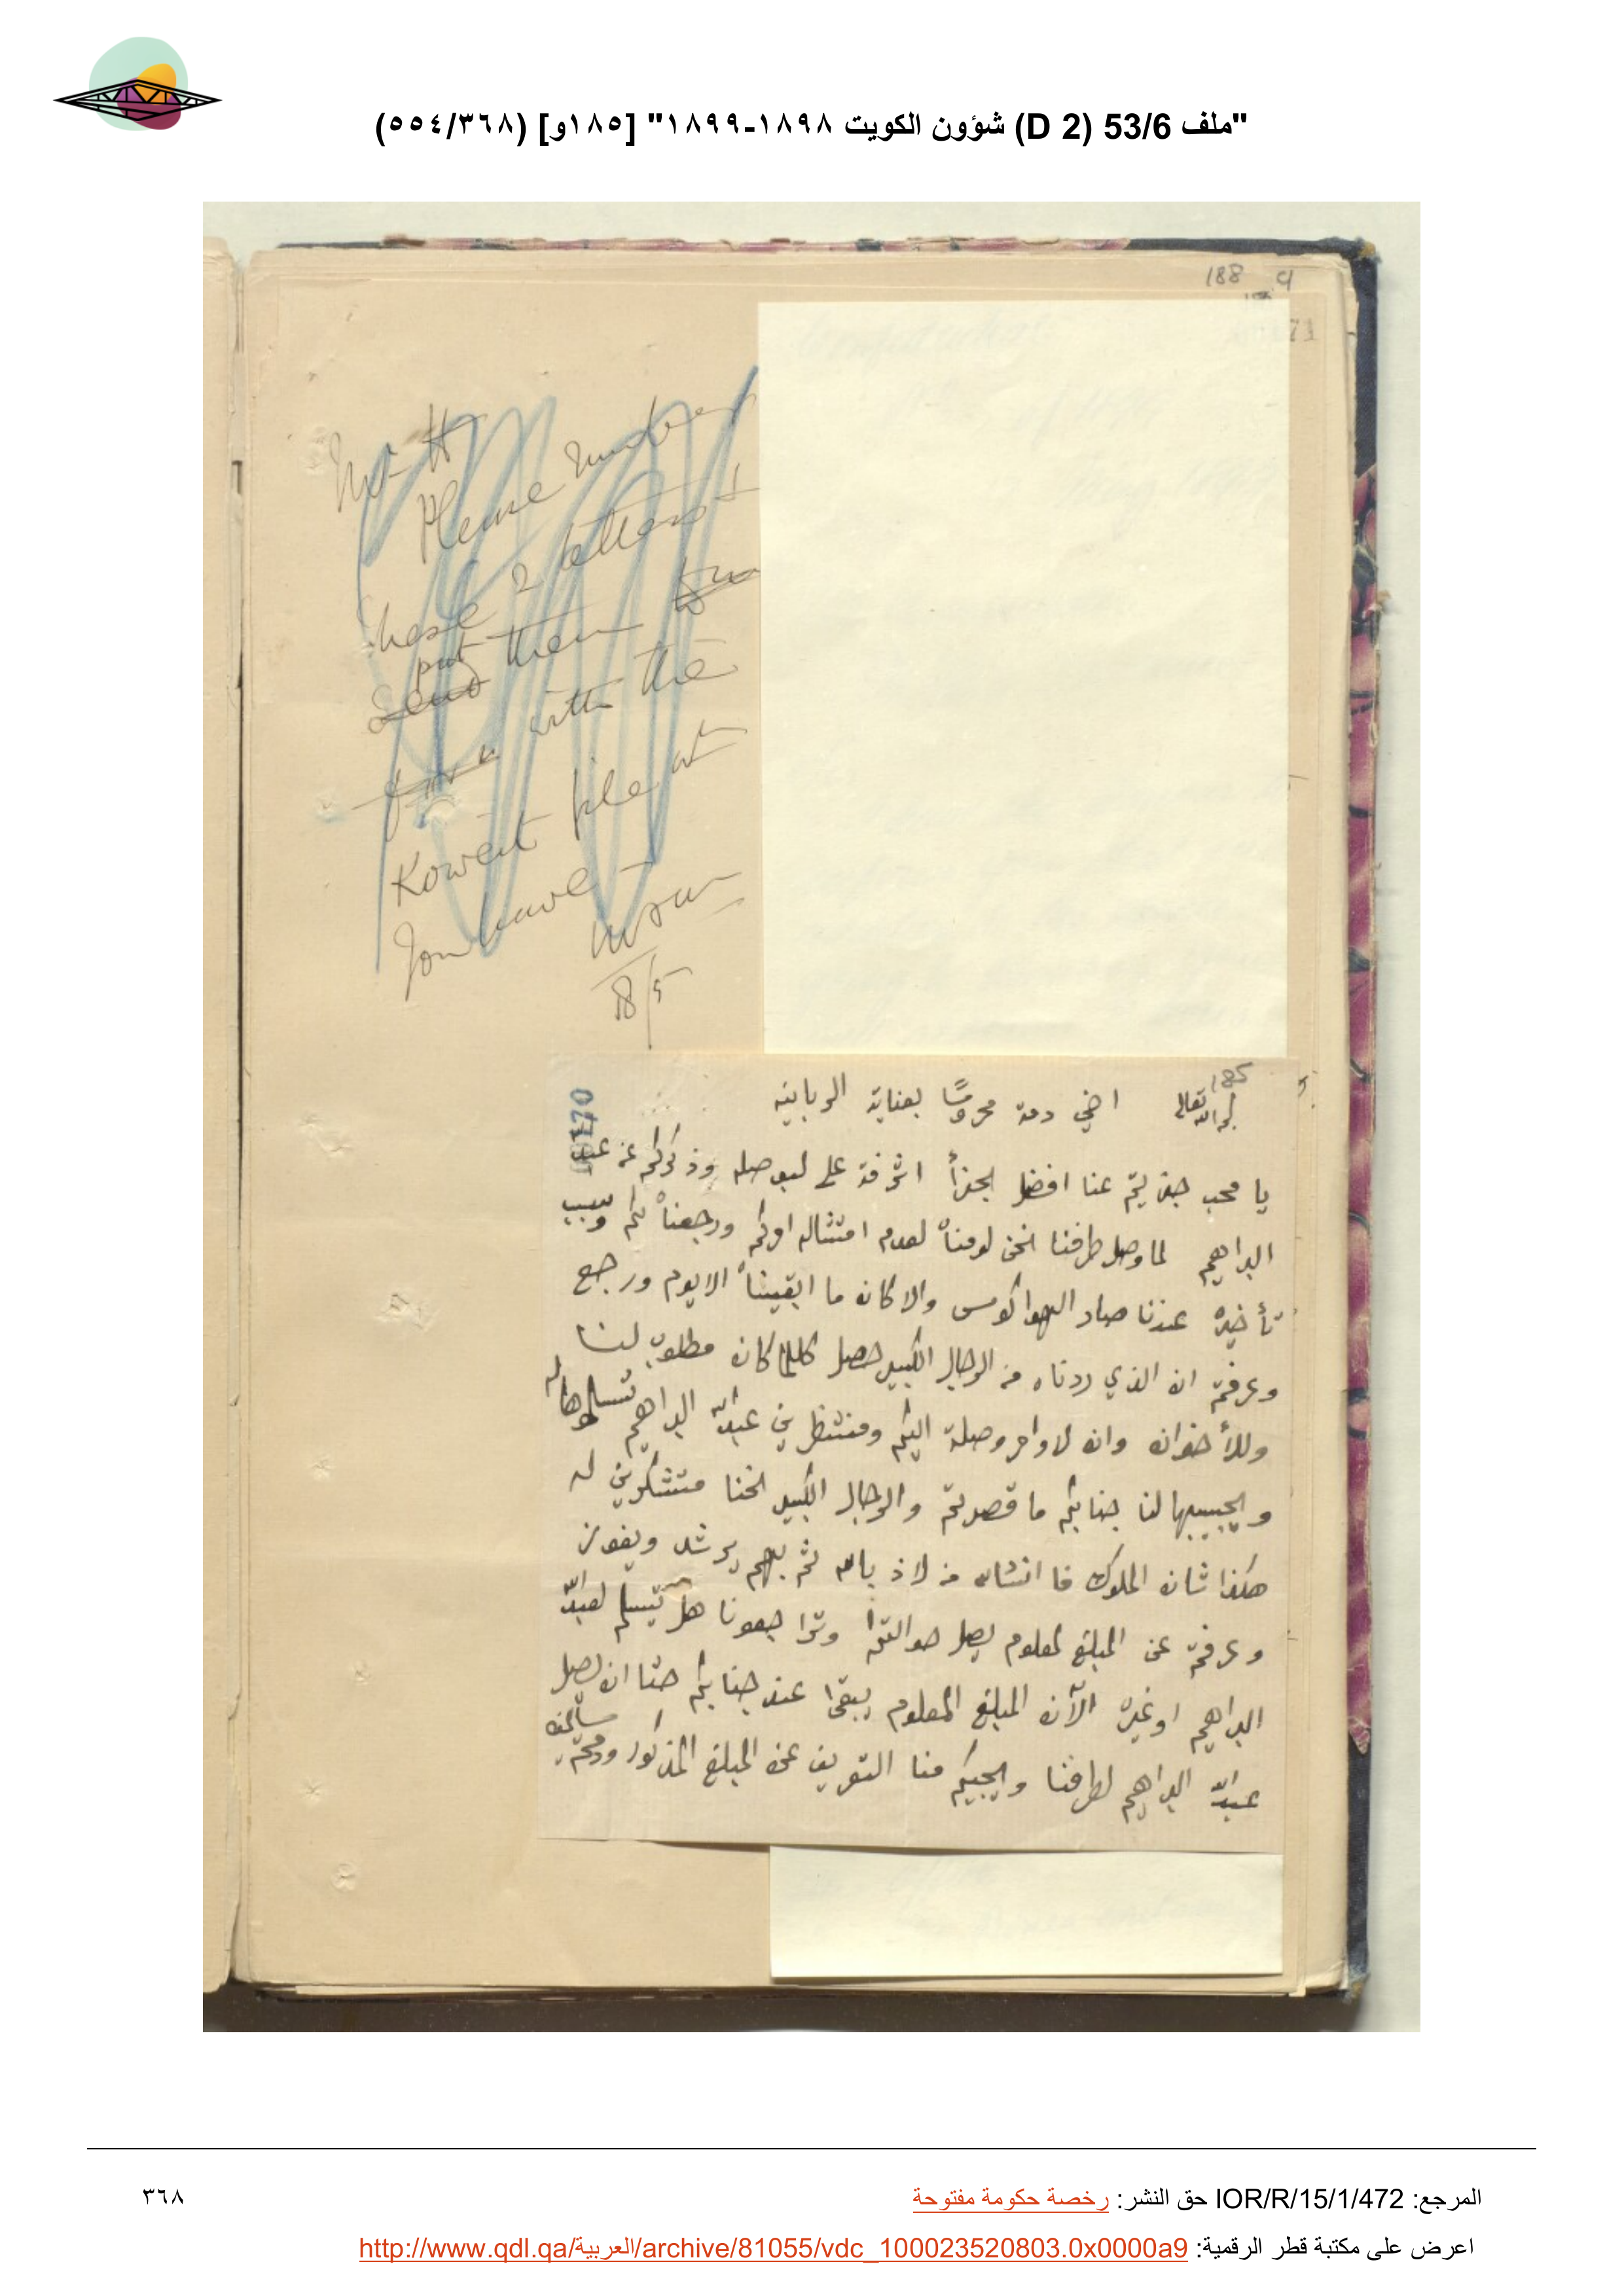 "ملف 53/6 (D 2) شؤون الكويت ١٨٩٨-١٨٩٩" [١٨٥و] (٥٥٤/٣٦٨)
188
Please number
these 2 letters &
put
send them
with the
Koweit file wh
you have
18/5
185
اخي دمت محروسًا بعناية الربانيه
يا محب جزيتم عنا افضل الجزأ اشرفة على لبوصله وذكركم عن عبد
البراهيم لما وصل طرفنا نحن لومناه لعدم امتثاله اوركم ورجعناه لكم وسبب
تأخيره عندنا صار الهوا كوس والا كان ما ابقيناه الا يوم ورجع
وعرفتم ان الذي ردناه من الرجال الكبير حصل كلما كان مطلوب لنا
وللأخوان وان لاوامر وصلة اليكم ومنتظرين عبدالله البراهيم تسلموها له
ويجيبها لنا جنابكم ما قصرتم والرجال الكبير نحنا متشكرين له
هكذا شان الملوك فا انشاله من لاذ بالله ثم بهم يرشد ويفوز
وعرفتم عن المبلغ لمعلوم يصل هوالتها وتراجعونا هل يتسلم لعبدالله
البراهيم او غيره الآن المبلغ المعلوم يبقا عند جنابكم حتا ان يصل
عبدالله البراهيم لطرفنا ويجيكم منا التعريف عن المبلغ المذكور ودمتم سالمين
المرجع: IOR/R/15/1/472 حق النشر: رخصة حكومة مفتوحة
٣٦٨
اعرض على مكتبة قطر الرقمية: http://www.qdl.qa/العربية/archive/81055/vdc_100023520803.0x0000a9